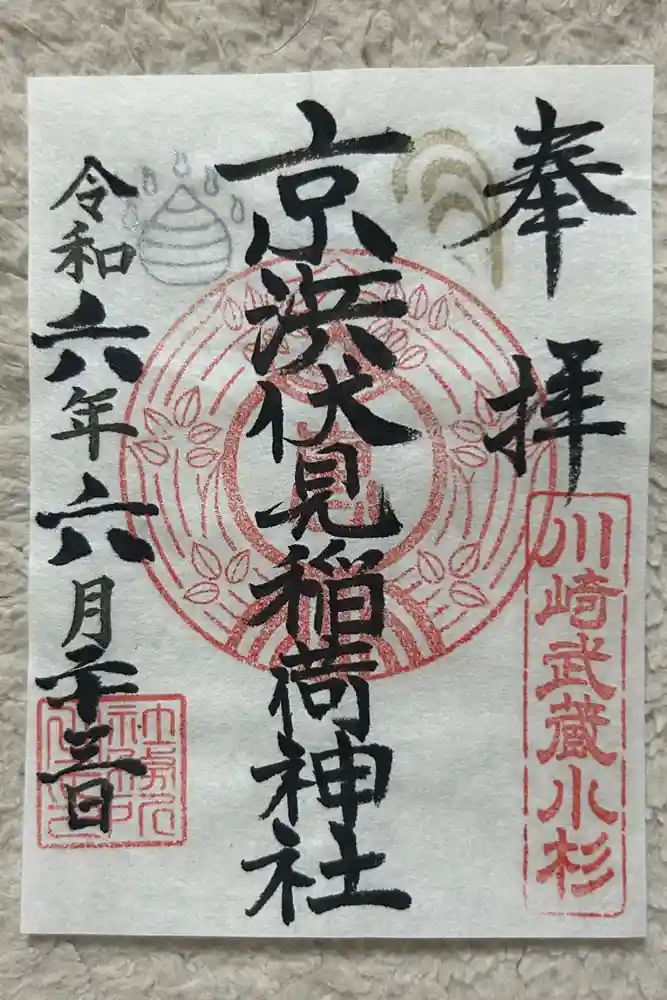 奉拝
川崎武蔵小杉
京濱伏見稲荷神社
令和六年六月二十三日
社務所